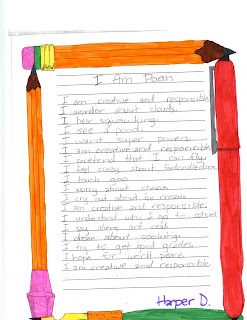 I Am Poem
I am creative and responsible.
I wonder about clouds.
I hear squawking.
I see a pond.
I want super powers.
I am creative and responsible
I pretend that I can fly.
I feel crazy about
I touch goo.
I worry about chess.
I cry out about ice cream.
I am creative and responsible.
I understand why I go to school.
I say aliens are real.
I dream about
I try to get good grades.
I hope for world peace.
I am creative and responsible
Harper D.